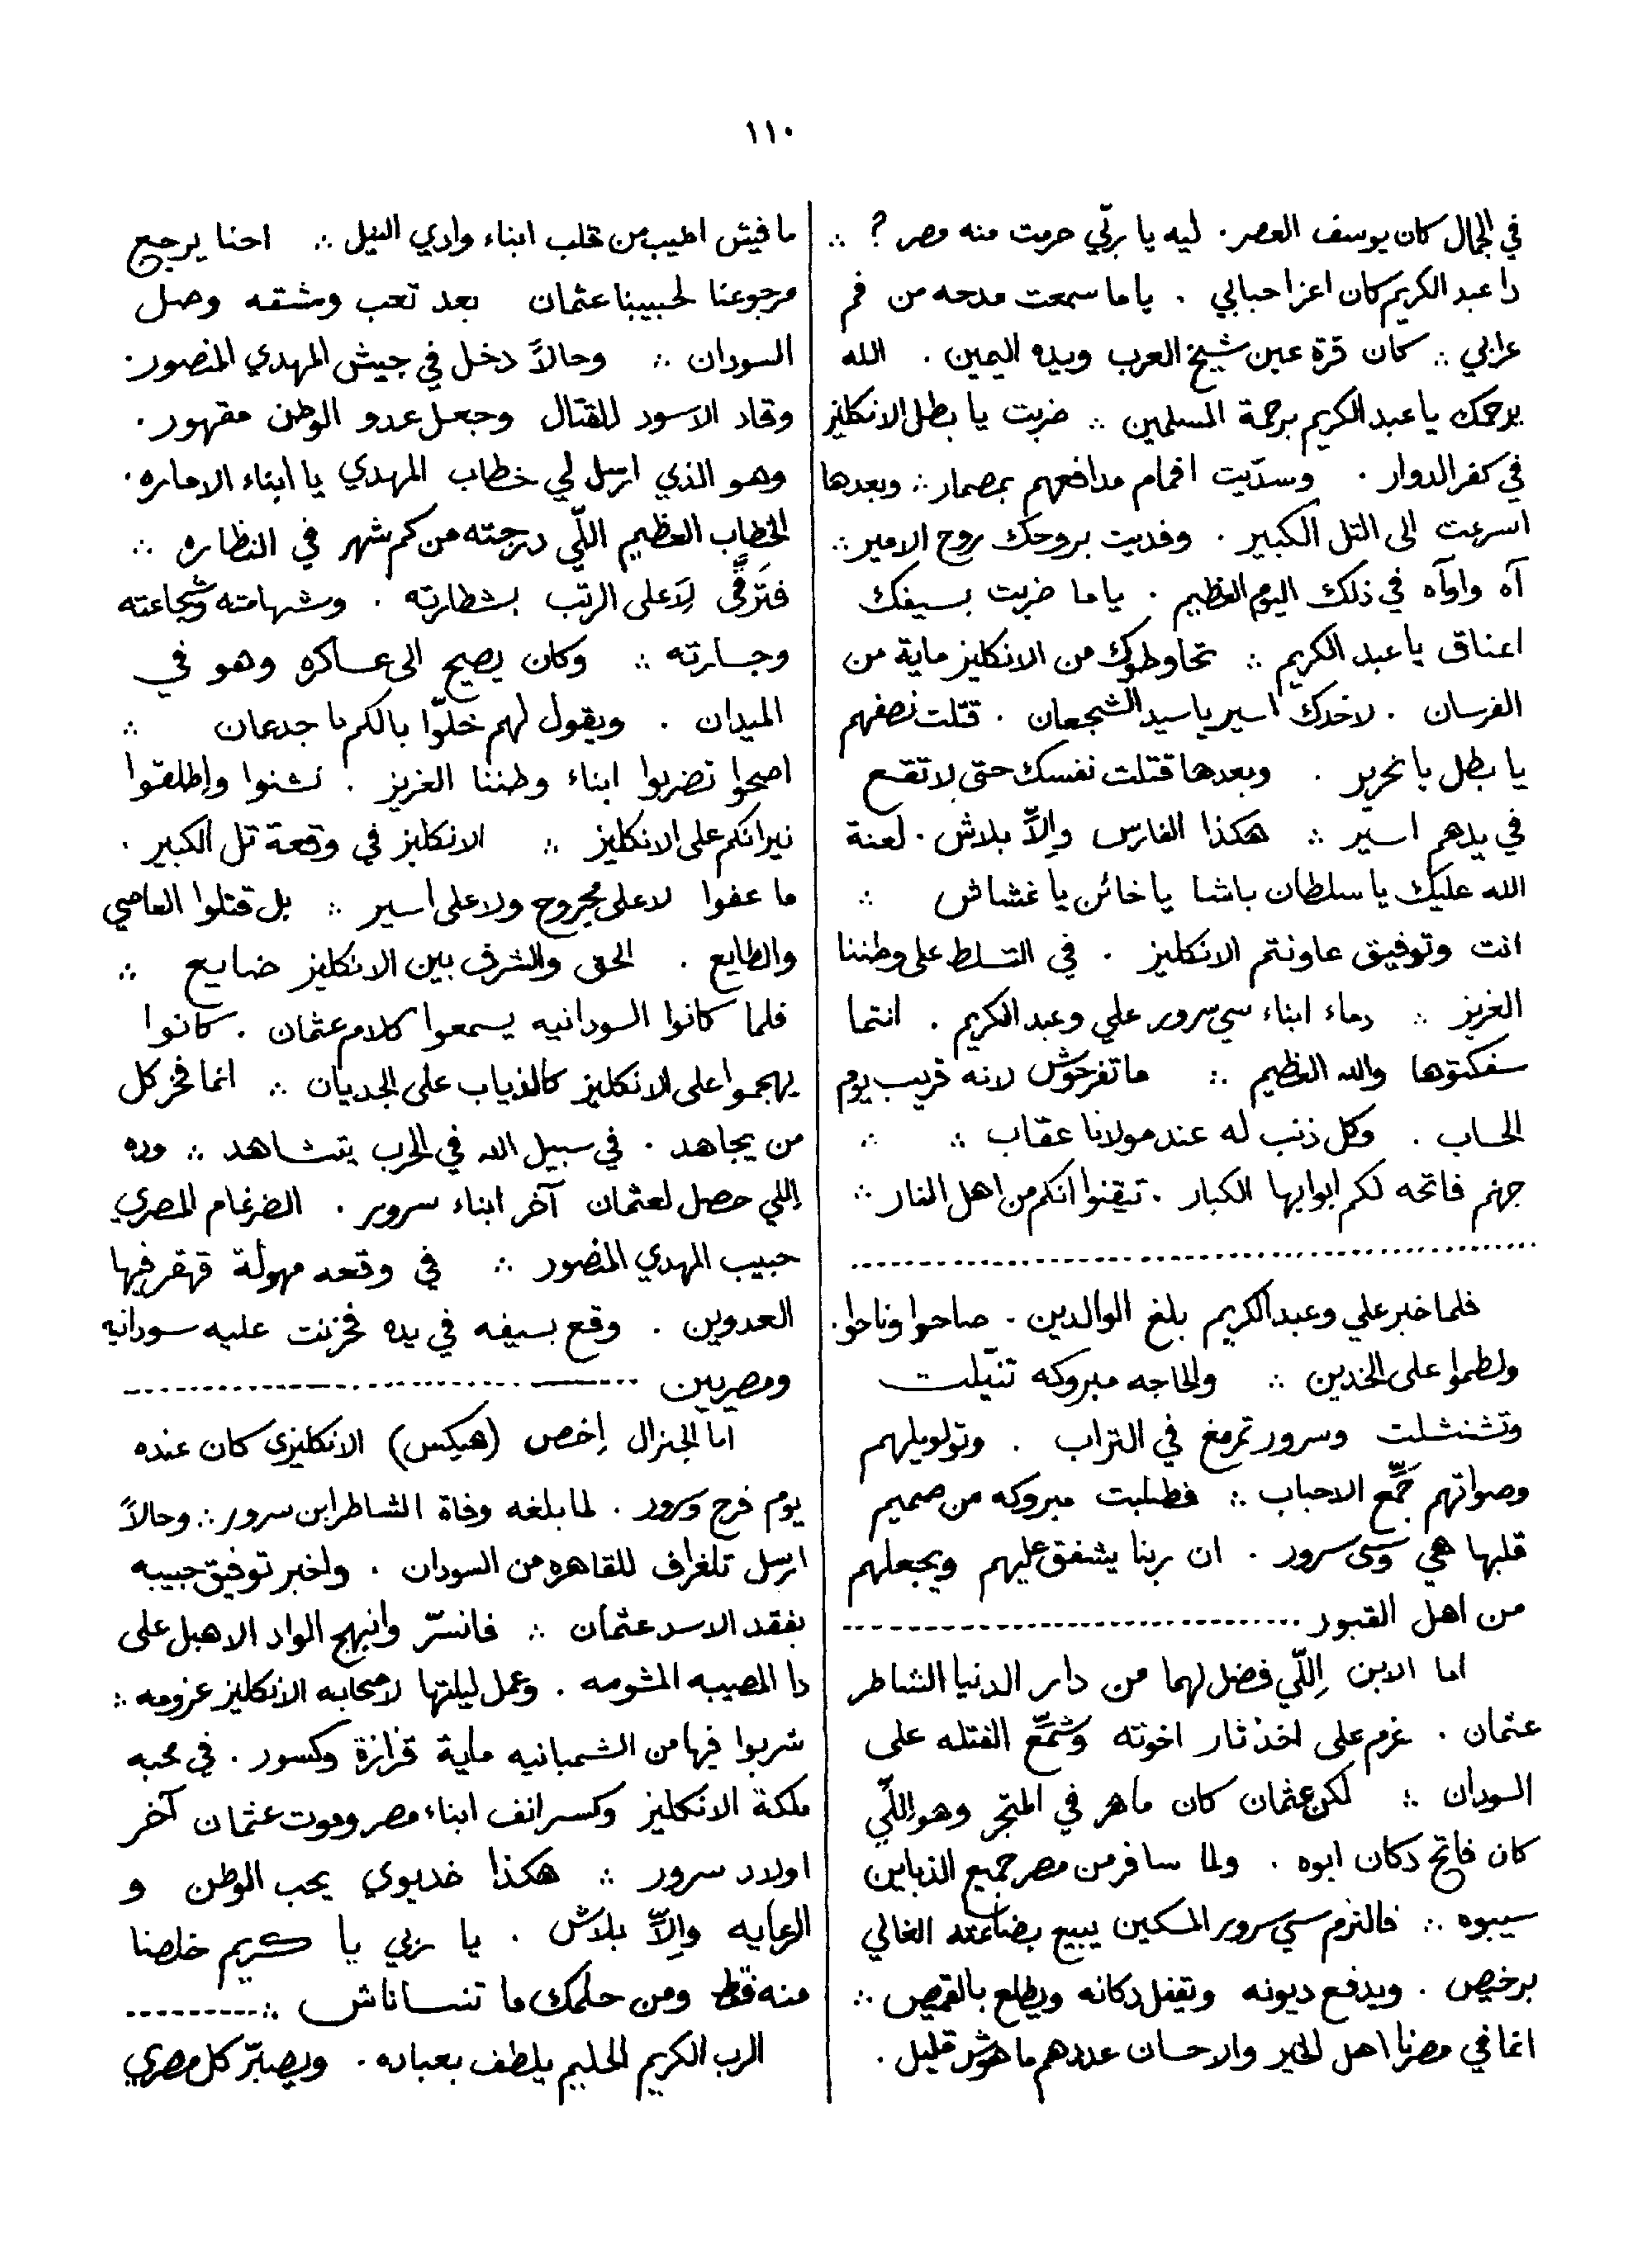 ١١٠
في الجمال كان يوسف العصر . ليه يا ربّي حرمت منه مصر ? ∴
دا عبد الكريم كان اعز احبابي . ياما سمعت مدحه من فم
عرابي ∴ كان قرة عين شيخ العرب ويده اليمين . الله
يرحمك يا عبد الكريم برحمة المسلمين ∴ ضربت يا بطل الانكليز
في كفر الدوار . وسدّيت افمام مدافعهم بمصمار ∴ وبعدها
اسرعت الى التل الكبير . وفديت بروحك روح الامير ∴
آه واوآه في ذلك اليوم العظيم . ياما ضربت بسيفك
اعناق يا عبد الكريم ∴ تحاوطوك من الانكليز ماية من
الفرسان . لاخدك اسير يا سيد الشجعان . قتّلت نصفهم
يا بطل يا نحرير . وبعدها قتلت نفسك حتى لا تقع
في يدهم اسير ∴ هكذا الفارس والاّ بلاش . لعنة
الله عليك يا سلطان باشا يا خائن يا غشاش ∴
انت وتوفيق عاونتم الانكليز . في التسلط على وطننا
العزيز ∴ دماء ابناء سي سرور علي وعبد الكريم . انتما
سفكتوها والله العظيم ∴ ما تفرحوش لانه قريب يوم
الحساب . وكل ذنب له عند مولانا عقاب ∴ ∴
جهنم فاتحه لكم ابوابها الكبار . تيقنوا انكم من اهل النار ∴
فلما خبر علي وعبد الكريم بلغ الوالدين . صاحوا وناحوا .
ولطموا على الخدين ∴ والحاجه مبروكه تنيّلت
وتشنشلت وسرور تمرمغ في التراب . وتولويلهم
وصواتهم جمّع الاحباب ∴ فطلبت مبروكه من صميم
قلبها هي وسى سرور . ان ربنا يشفق عليهم ويجعلهم
من اهل القبور ..............................
اما الابن اِللّي فضل لهما من دار الدنيا الشاطر
عثمان . عزم على اخذ ثار اخوته وشمّع الفتله على
السودان ∴ لكن عثمان كان ماهر في المتجر وهو اللّي
كان فاتح دكان ابوه . ولما سافر من مصر جميع الذباين
سيبوه ∴ فالتزم سي سرور المسكين يبيع بضاعته الغالي
برخيص . ويدفع ديونه وتقفل دكانه ويطلع بالقميص ∴
انما في مصرنا اهل الخير والاحسان عددهم ما هوش قليل .
ما فيش اطيب من قلب ابناء وادي النيل ∴ احنا يرجع
مرجوعنا لحبيبنا عثمان بعد تعب ومشقه وصل
السودان ∴ وحالاً دخل في جيش المهدي المنصور .
وقاد الاسود للقتال وجعل عدو الوطن مقهور .
وهو الذي ارسل لي خطاب المهدي يا ابناء الاماره .
الخطاب العظيم اللّي درجته من كم شهر في النظاره ∴
فترقّى لاَعلى الرتب بشطارته . وشهامته وشجاعته
وجسارته ∴ وكان يصيح الى عساكره وهو في
الميدان . ويقول لهم خلّوا بالكم يا جدعان ∴
اصحوا تضربوا ابناء وطننا العزيز . نشنوا واطلقوا
نيرانكم على الانكليز ∴ الانكليز في وقعة تل الكبير .
ما عفوا لا على مجروح ولا على اسير ∴ بل قتلوا العاصي
والطايع . الحق والشرف بين الانكليز ضايع ∴
فلما كانوا السودانيه يسمعوا كلام عثمان . كانوا
يهجموا على الانكليز كالذياب على الجديان ∴ انما فخر كل
من يجاهد . في سبيل الله في الحرب يتشاهد ∴ وده
اِللي حصل لعثمان آخر ابناء سرور . الضرغام المصري
حبيب المهدي المنصور ∴ في وقعه مهولة قهقر فيها
العدوين . وقع بسيفه في يده فحزنت عليه سودانيه
ومصريين ..............................
اما الجنرال اِخص (هيكس) الانكليزي كان عنده
يوم فرح وسرور . لما بلغه وفاة الشاطر ابن سرور ∴ وحالاً
ارسل تلغراف للقاهره من السودان . واخبر توفيق حبيبه
بفقد الاسد عثمان ∴ فانسرّ وانبهج الواد الاهبل على
دا المصيبه المشومه . وعمل ليلتها لاصحابه الانكليز عزومه ∴
شربوا فيها من الشمبانيه ماية قزازة وكسور . في محبه
ملكة الانكليز وكسر انف ابناء مصر وموت عثمان آخر
اولاد سرور ∴ هكذا خديوي يحب الوطن و
الرعايه والاّ بلاش . يا ربي يا كريم خلصنا
منه قط ومن حلمك ما تنساناش ∴ ..........
الرب الكريم الحليم يلطف بعباده . ويصبّر كل مصري